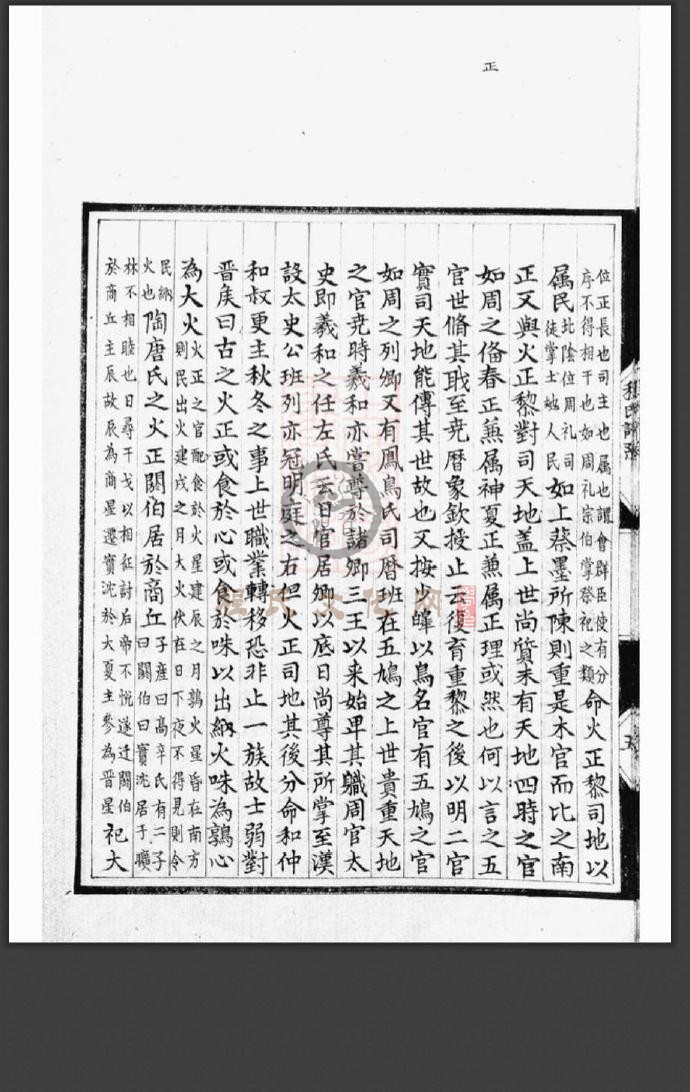 正
位正長也司主也属也謂會群臣使有分
序不得相干也如周礼宗伯掌祭祀之類
命火正黎司地以
属民
北陰位周礼司
徒掌土地人民
如上蔡墨所陳則重是木官而比之南
正又與火正黎對司天地盖上世尚質未有天地四時之官
如周之俻春正兼属神夏正兼属正理或然也何以言之五
官世脩其職至尭暦象欽授止云復育重黎之後以明二官
實司天地能傳其世故也又按少皞以鳥名官有五鳩之官
如周之列卿又有鳳鳥氏司暦班在五鳩之上世貴重天地
之官尭時羲和亦當尊於諸卿三王以来始卑其職周官太
史即羲和之任左氏云日官居卿以底日尚尊其所掌至漢
設太史公班列亦冠明庭之右但火正司地其後分命和仲
和叔更主秋冬之事上世職業轉移恐非止一族故士弱對
晋矦曰古之火正或食於心或食於咮以出納火咮為鶉心
為大火
火正之官配食於火星建辰之月鶉火星昏在南方
則民出火建戌之月大火伏在日下夜不得見則令
民納
火也
陶唐氏之火正閼伯居於商丘
子産曰高辛氏有二子
曰閼伯曰實沈居于曠
林不相睦也日尋干戈以相征討后帝不悦遂迁閼伯
於商丘主辰故辰為商星遷實沈於大夏主參為晋星
祀大
程氏文化网